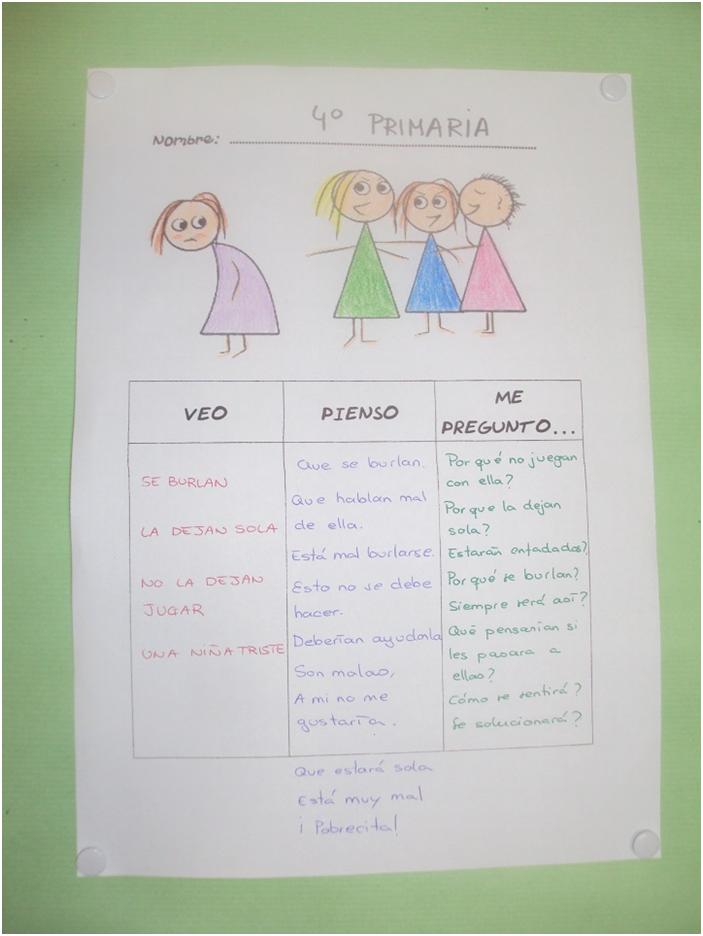 4º PRIMARIA
Nombre:
VEO
PIENSO
ME
PREGUNTO...
SE BURLAN
LA DEJAN SOLA
NO LA DEJAN
JUGAR
UNA NIÑA TRISTE
Que se burlan.
Que hablan mal
de ella.
Está mal burlarse.
Esto no se debe
hacer.
Deberían ayudarla
Son malas,
A mi no me
gustaría.
Que estará sola
Está muy mal
¡Pobrecita!
Por qué no juegan
con ella?
Por que la dejan
sola?
Estarán enfadadas?
Por qué se burlan?
Siempre será así?
Qué pensarían si
les pasara a
ellas?
Cómo se sentirá?
Se solucionará?